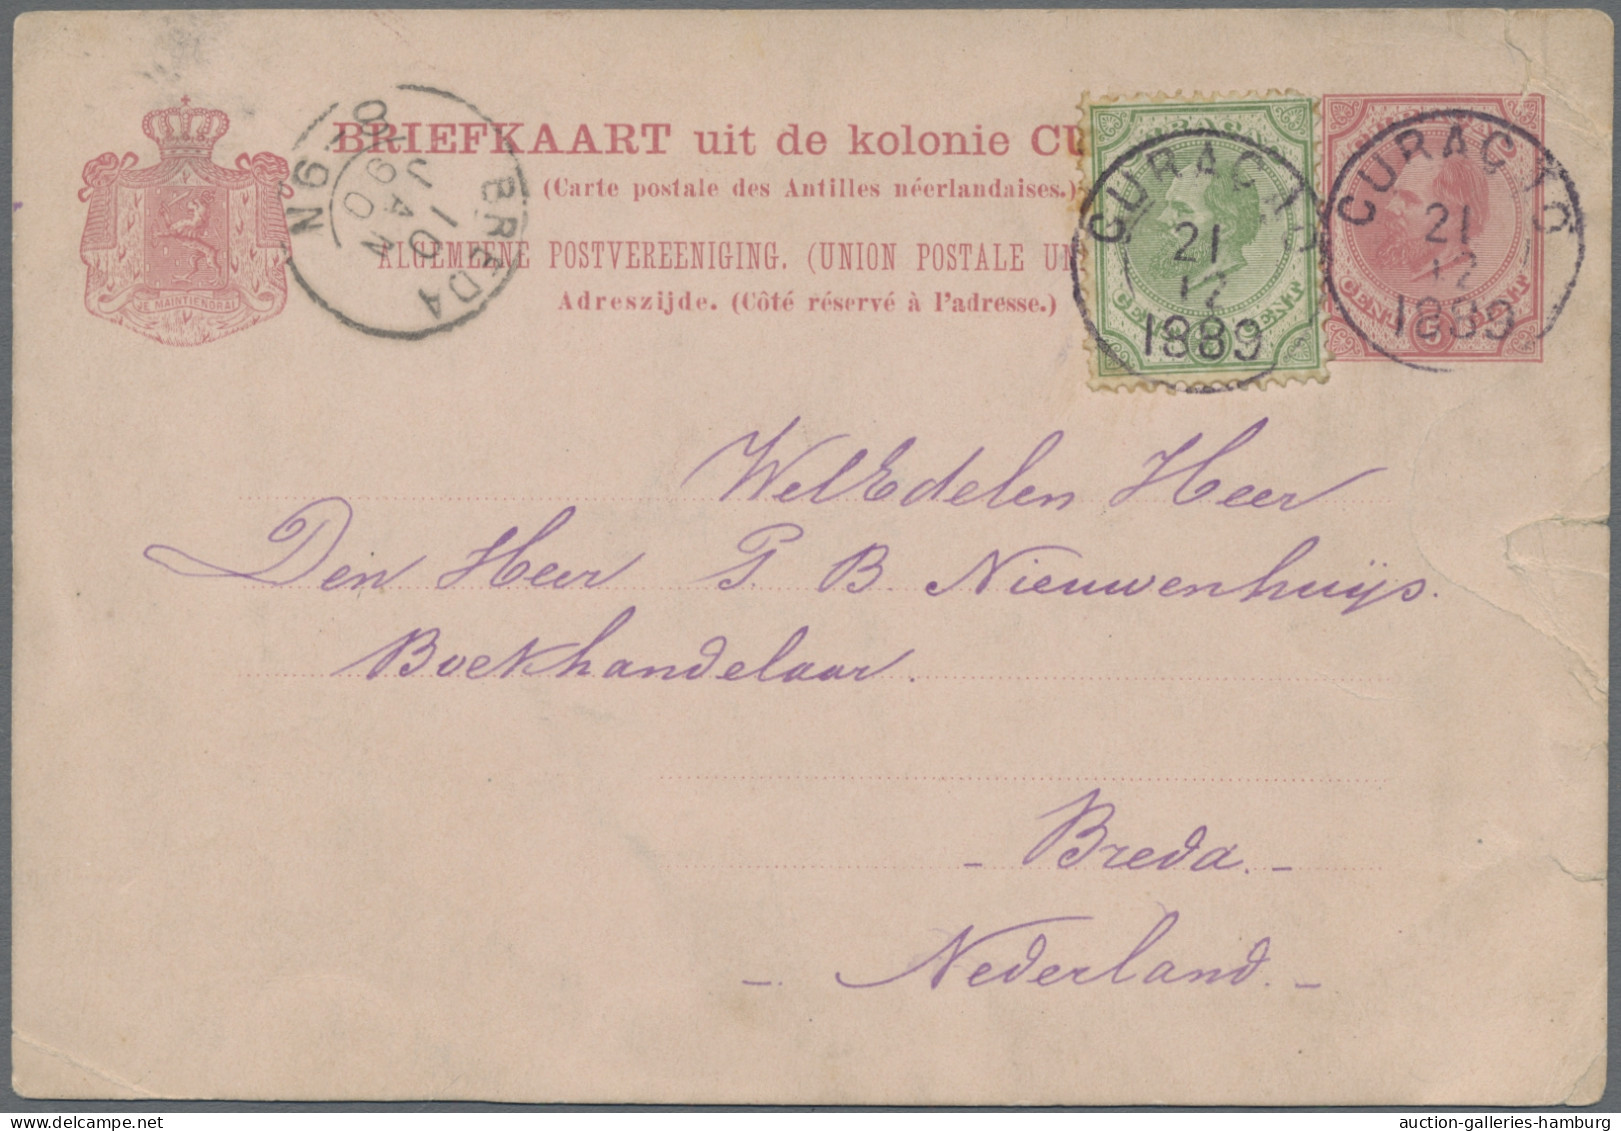 BRIEFKAART uit de kolonie CU
(Carte postale des Antilles néerlandaises.)
ALGEMEENE POSTVEREENIGING. (UNION POSTALE UN
Adreszijde. (Côté réservé à l'adresse.)
JE MAINTIENDRAI
BREDA
10 JAN 90
CURAÇAO
21
12
1889
CENT
CURAÇAO
21
12
1889
CENT
WelEdelen Heer
Den Heer G. B. Nieuwenhuijs.
Boekhandelaar.
- Breda. -
- Nederland. -
auction-galleries-hamburg